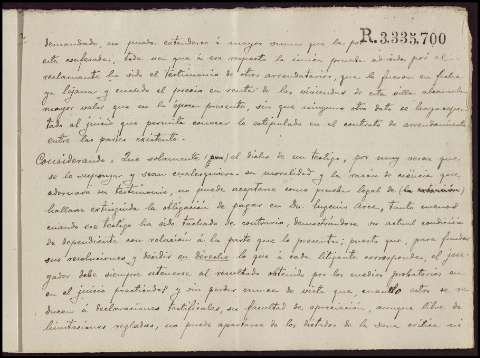 R.3.335.700
demandado, no puede extenderse á mayor suma que la por
este confesada, toda vez que á ese respecto la única prueba aducida por el
reclamante ha sido el testimonio de otros arrendatarios, que lo fueron en fecha
ya lejana y cuando el precio en renta de las viviendas de esta villa alcanzaba
mayor valor que en la época presente, sin que ninguna otra dato se haya apor-
tado al juicio que permita conocer lo estipulado en el contrato de arrendamiento
entre las partes existente.
Considerando: Que solamente (pues) el dicho de un testigo, por muy veraz que
se le suponga y sean cualesquiera su moralidad y la razón de ciencia que
adornara su testimonio, no puede aceptarse como prueba legal de (la extinción)
hallarse extinguida la obligación de pagar en Dn. Eugenio Arce, tanto menos
cuando ese testigo ha sido tachado de contrario, demostrándose su actual condición
de dependiente con relación á la parte que lo presenta; puesto que, para fundar
sus resoluciones y decidir en derecho lo que á cada litigante corresponde, el juz-
gador debe siempre atenerse al resultado obtenido por los medios probatorios que
en el juicio practicados y sin perder nunca de vista que cuando estos se re-
ducen á declaraciones testificales, su facultad de apreciación, aunque libre de
limitaciones regladas, no puede apartarse de los dictados de la sana crítica ni